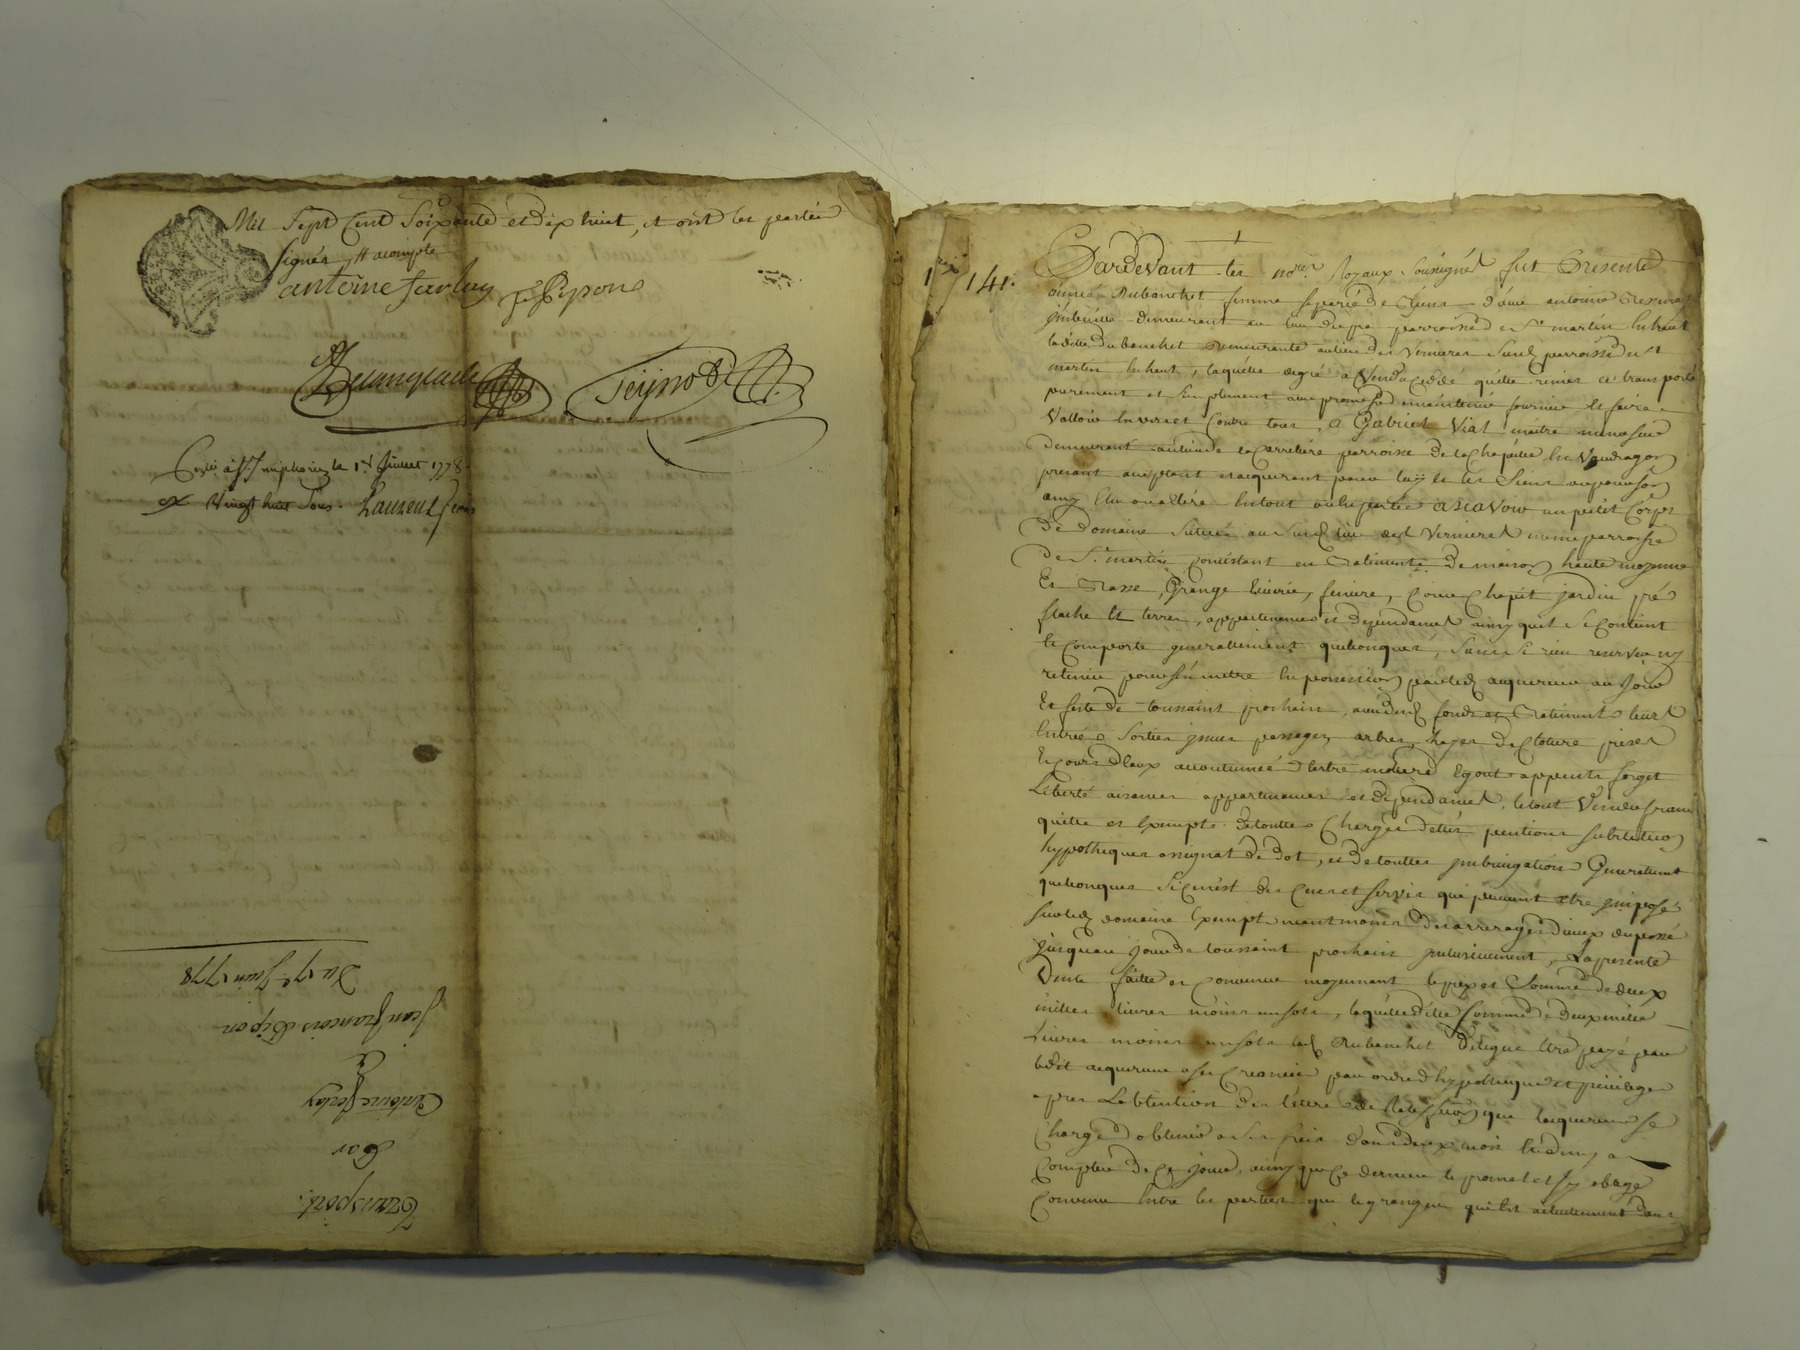 Mil Sept Cent Soixante et dix huit, et ont les parties
signés, H acompte
antoine ferlay J f Pipon
Teÿnod
le 1er Juillet 1778
vingt huit sous. Laurenson
Du 17e Juin 1778
Jean francois Pipon
a
Antoine ferlay
Par
Transport.
1 141.
Pardevant les nores Royaux Soussignés fut Presente
aimeé Dubanchet femme separeé de Biens d'avec antoine
demeurant au lieu parroisse de St martin En haut
laditte Dubanchet Demeurante au lieu des Verrieres Susd parroisse de St
martin En haut, laquelle degré a Vendu Ceddé quitté remis et transporté
purement et Simplement avec promesse de maintenir fournir Et faire
Valloir Envers et Contre tous, a Gabriel Vial maitre
demeurant au lieu de la Carreliere parroisse de la Chapelle En Vaudragon
present acceptant et acquerant pour luÿ Et les Siens ou pour son
amy Elu ou a Elire En tout ou En partie ascavoir un petit Corps
De domaine Situeé au Susd lieu des Verrieres même parroisse
De St martin Consistant en Batiments De maison haute moyenne
Et Basse, Grange Ecurie, feniere, Cour Chapit jardin pré
pache Et terres, appartenances et dependances ainsy quil Se Contient
Et Comporte generallement quelconques, Sans Se rien reserver ny
retenir pour s'en mettre En possession par led acquereur au jour
Et feste de toussaint prochain, avec desd fonds et Batiments leurs
Entrées Sorties passages, arbres, hayes De Cloture prises
Et cours D'eaux accoutumeé Egout appents forget
Liberté aisances appartenances et dependances, le tout Vendu franc
quitte et Exempt De touttes Charges dettes pentions substitution
hypotheques assignat De dot, et De touttes Generalement
quelconques Si Cen'est des Cens et Servis qui peuvent etre imposé
Sur led domaine Exempt neantmoins Des arrerages D'iceux du passé
jusquau jour De toussaint prochain La presente
Vente faitte et Convenue moyennant le prix et Somme De deux
milles livres moins un sols, laquelle ditte Somme De Deux milles
Livres moins un sols lad Dubanchet Delegue Etre payé par
ledit acquereur a ses Creanciers par ordre D'hypotheque et privileges
apres Lobtention des lettres de Ratiffication que lacquereur se
Charge D'obtenir a Ses frais Dans deux mois En dis a
Compter De Ce jour, ainsy que Ce dernier le promet et Sy oblige
Convenu Entre les parties que le granger qui Est actuellement dans